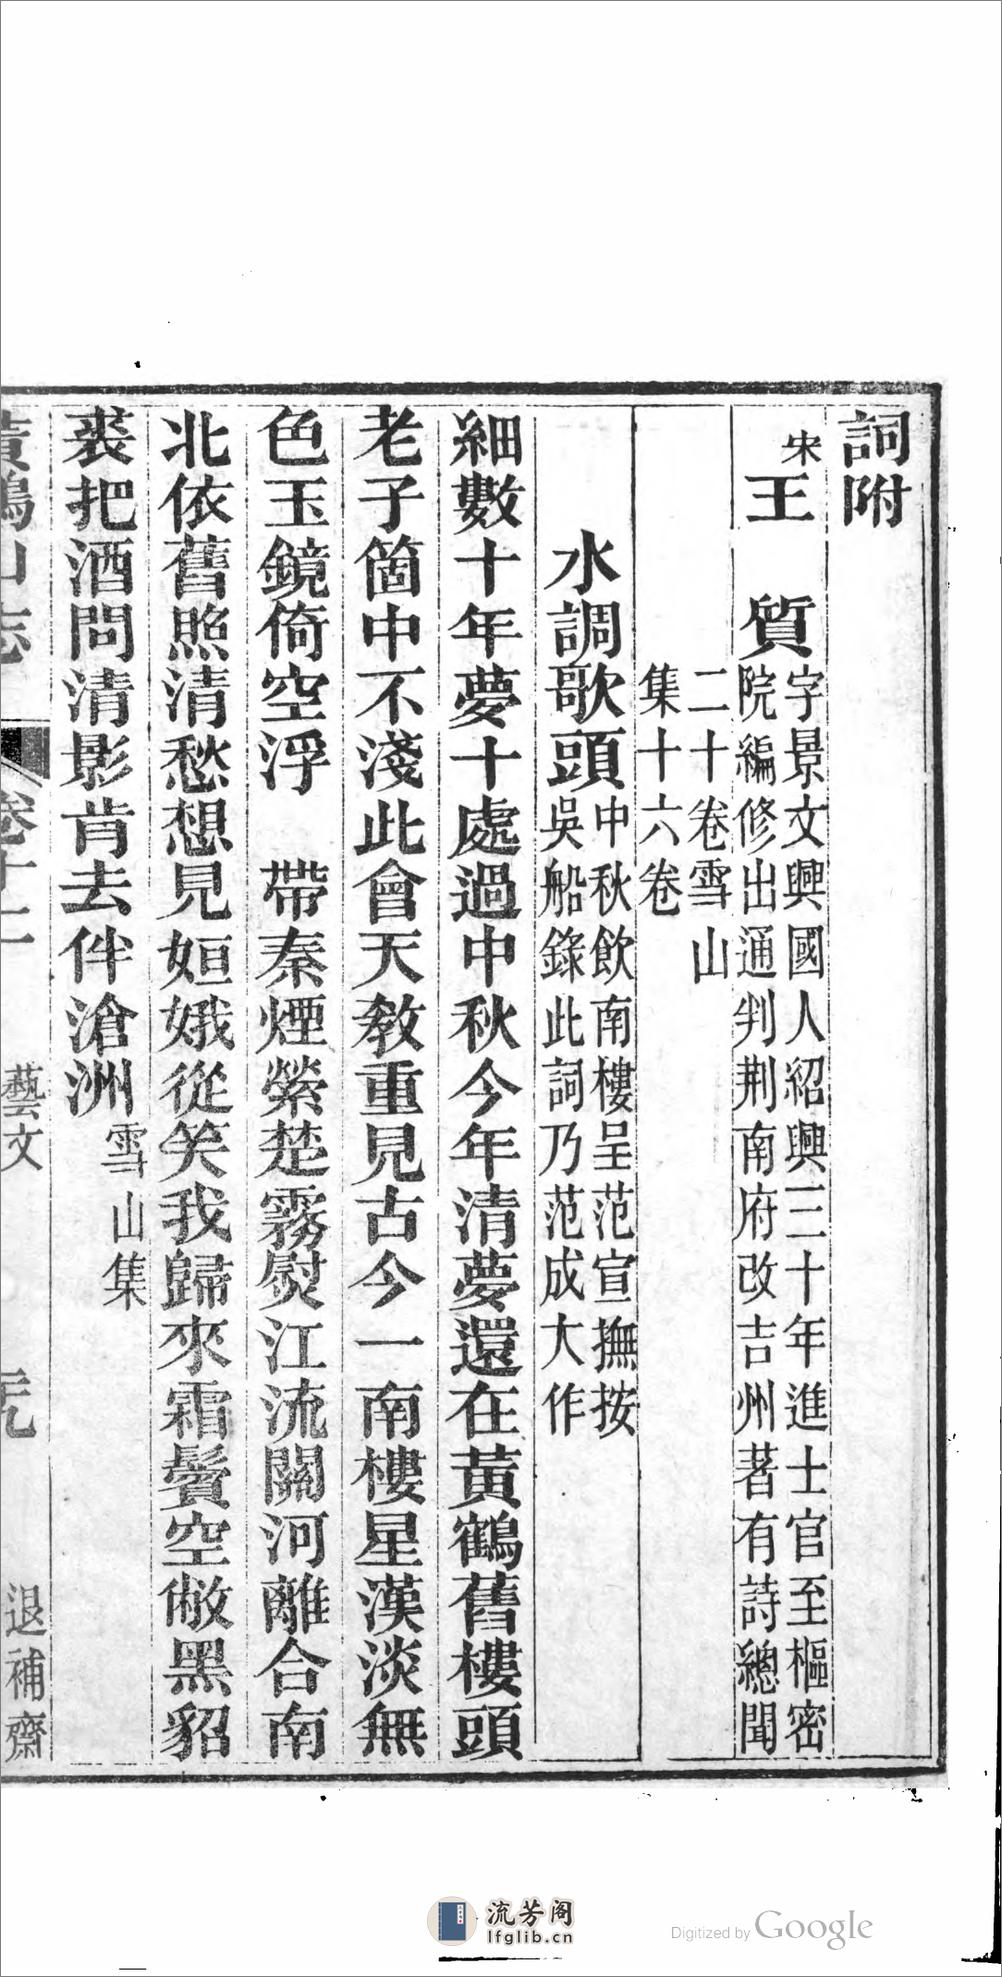 詞附
宋王質字景文興國人紹興三十年進士官至樞密
院編修出通判荆南府改吉州著有詩總聞
二十卷雪山
集十六卷
水調歌頭中秋飲南樓呈范宣撫按
吳船錄此詞乃范成大作
細數十年夢十處過中秋今年清夢還在黃鶴舊樓頭
老子箇中不淺此會天教重見古今一南樓星漢淡無
色玉鏡倚空浮 帶秦煙縈楚霧熨江流關河離合南
北依舊照清愁想見姮娥從笑我歸來霜鬢空敝黑貂
裘把酒問清影肯去伴滄洲雪山集
黃鵠山志 卷十二 藝文 退補齋
流芳阁
lfglib.cn
Digitized by Google